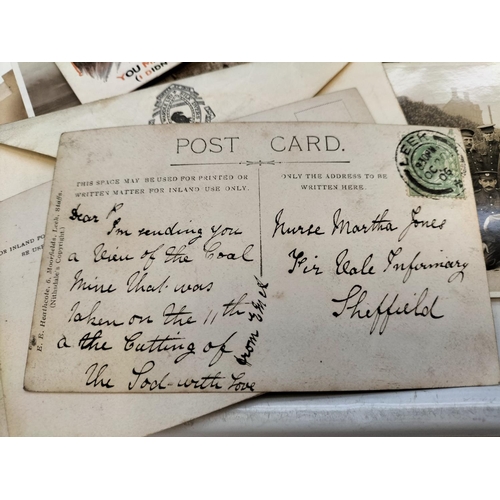 YOU
(I DIDN
POST CARD.
THIS SPACE MAY BE USED FOR PRINTED OR
WRITTEN MATTER FOR INLAND USE ONLY.
ONLY THE ADDRESS TO BE
WRITTEN HERE.
LEEK
OC
06
Dear
I'm sending you
a View of the Coal
Mine that was
taken on the 11th
a the Cutting of
the Sod - with Love
from
Nurse Martha Jones
Fir Vale Infirmary
Sheffield
E. R. Heathcote, 6, Moorfields, Leek, Staffs.
(Nithsdale's Copyright.)